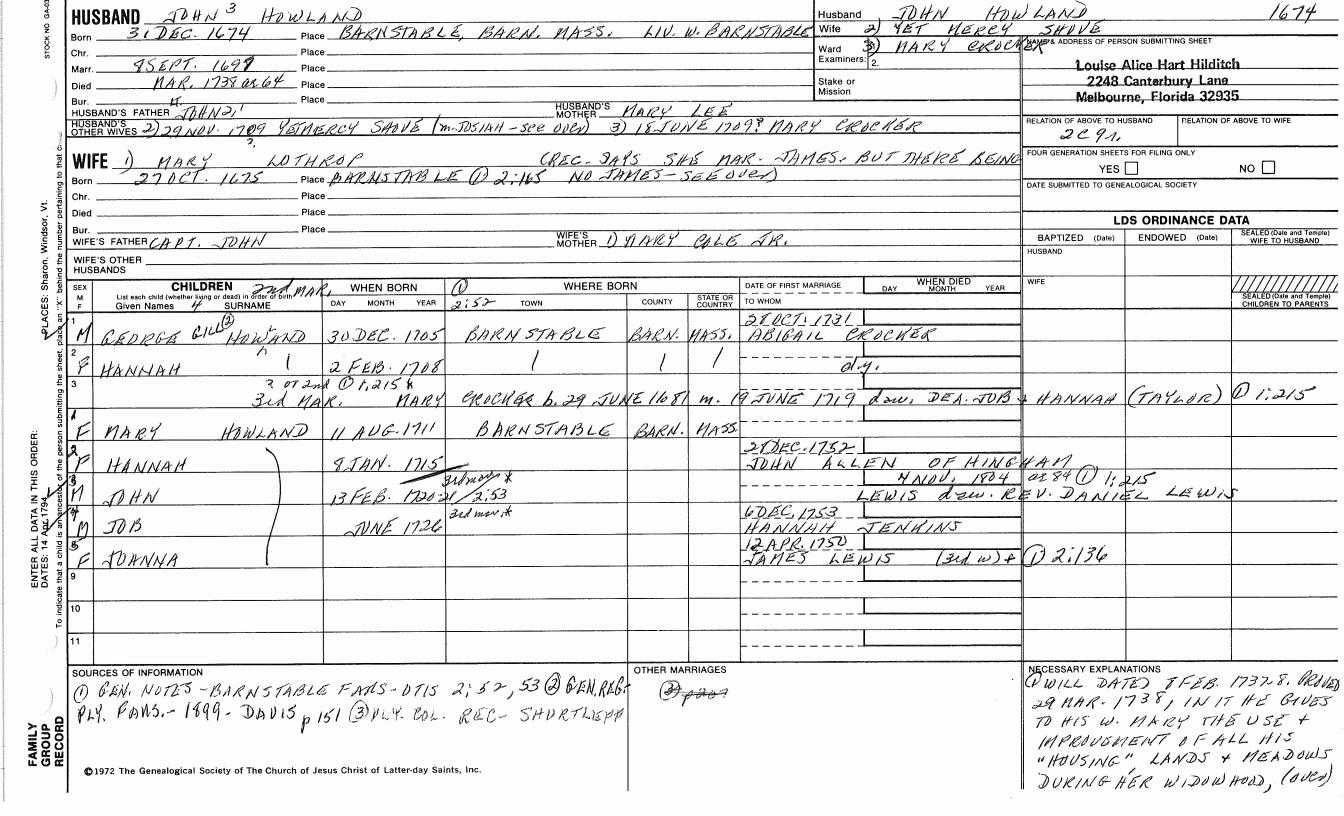 HUSBAND JOHN 3 HOWLAND
Born 31 DEC. 1674 Place BARNSTABLE, BARN. MASS. LIV. W. BARNSTABLE
Chr. Place
Marr. 8 SEPT. 1699 Place
Died MAR. 1738 or 64 Place
Bur. Place
HUSBAND'S FATHER JOHN 2,1 HUSBAND'S MOTHER MARY LEE
HUSBAND'S OTHER WIVES 2) 29 NOV. 1709 YETMERCY SHOVE (m. JOSIAH - see over) 3) 18 JUNE 1709? MARY CROCKER
?
Husband JOHN HOWLAND 1674
Wife 2) YET MERCY SHOVE
Ward 3) MARY CROCKER
Examiners: 2.
Stake or Mission
NAME & ADDRESS OF PERSON SUBMITTING SHEET
Louise Alice Hart Hilditch
2248 Canterbury Lane
Melbourne, Florida 32935
RELATION OF ABOVE TO HUSBAND RELATION OF ABOVE TO WIFE
FOUR GENERATION SHEETS FOR FILING ONLY
YES NO
DATE SUBMITTED TO GENEALOGICAL SOCIETY
WIFE 1) MARY LOTHROP (REC. SAYS SHE MAR. JAMES. BUT THERE BEING
Born 27 OCT. 1675 Place BARNSTABLE (1) 2:165 NO JAMES - SEE over)
Chr. Place
Died Place
Bur. Place
WIFE'S FATHER CAPT. JOHN WIFE'S MOTHER 1) MARY COLE JR.
WIFE'S OTHER HUSBANDS
LDS ORDINANCE DATA
BAPTIZED (Date) ENDOWED (Date) SEALED (Date and Temple) WIFE TO HUSBAND
HUSBAND
WIFE
SEALED (Date and Temple) CHILDREN TO PARENTS
SEX M F CHILDREN 2nd MAR. WHEN BORN (1) WHERE BORN DATE OF FIRST MARRIAGE WHEN DIED
List each child (whether living or dead) in order of birth
Given Names 4 SURNAME DAY MONTH YEAR 2:52 TOWN COUNTY STATE OR COUNTRY TO WHOM DAY MONTH YEAR
1 28 OCT. 1731
M GEORGE GILL (2) HOWLAND 30 DEC. 1705 BARNSTABLE BARN. MASS. ABIGAIL CROCKER
2
F HANNAH 2 FEB. 1708 d.y.
3 3 or 2nd (1) 1,215
3rd MAR. MARY CROCKER b. 29 JUNE 1681 m. 19 JUNE 1719 daw. DEA. JOB + HANNAH (TAYLOR) (1) 1:215
1
F MARY HOWLAND 11 AUG. 1711 BARNSTABLE BARN. MASS
2 28 DEC. 1752
F HANNAH 8 JAN. 1715 JOHN ALLEN OF HINGHAM
3 3rd mar * 4 NOV. 1804 or 84 (1) 1:215
M JOHN 13 FEB. 1720-21 2:53 LEWIS daw. REV. DANIEL LEWIS
4 3rd mar * 6 DEC. 1753
M JOB JUNE 1726 HANNAH JENKINS
5 12 APR. 1750
F JOANNA JAMES LEWIS (3rd w) + (1) 2:136
9
10
11
SOURCES OF INFORMATION
(1) GEN. NOTES - BARNSTABLE FAMS - OTIS 2:52, 53 (2) GEN. REG.
PLY. FAMS. - 1899 - DAVIS p 151 (3) PLY. COL. REC - SHURTLEFF
OTHER MARRIAGES
(2) p 209
NECESSARY EXPLANATIONS
(1) WILL DATED 8 FEB. 1732-8. PROVED
29 MAR. 1738, IN IT HE GIVES
TO HIS W. MARY THE USE +
IMPROVEMENT OF ALL HIS
"HOUSING" LANDS + MEADOWS
DURING HER WIDOWHOOD, (over)
©1972 The Genealogical Society of The Church of Jesus Christ of Latter-day Saints, Inc.
FAMILY GROUP RECORD
ENTER ALL DATA IN THIS ORDER:
DATES: 14 Apr 1794
PLACES: Sharon, Windsor, Vt.
To indicate that a child is an ancestor of the person submitting the sheet, place an "X" behind the number pertaining to that